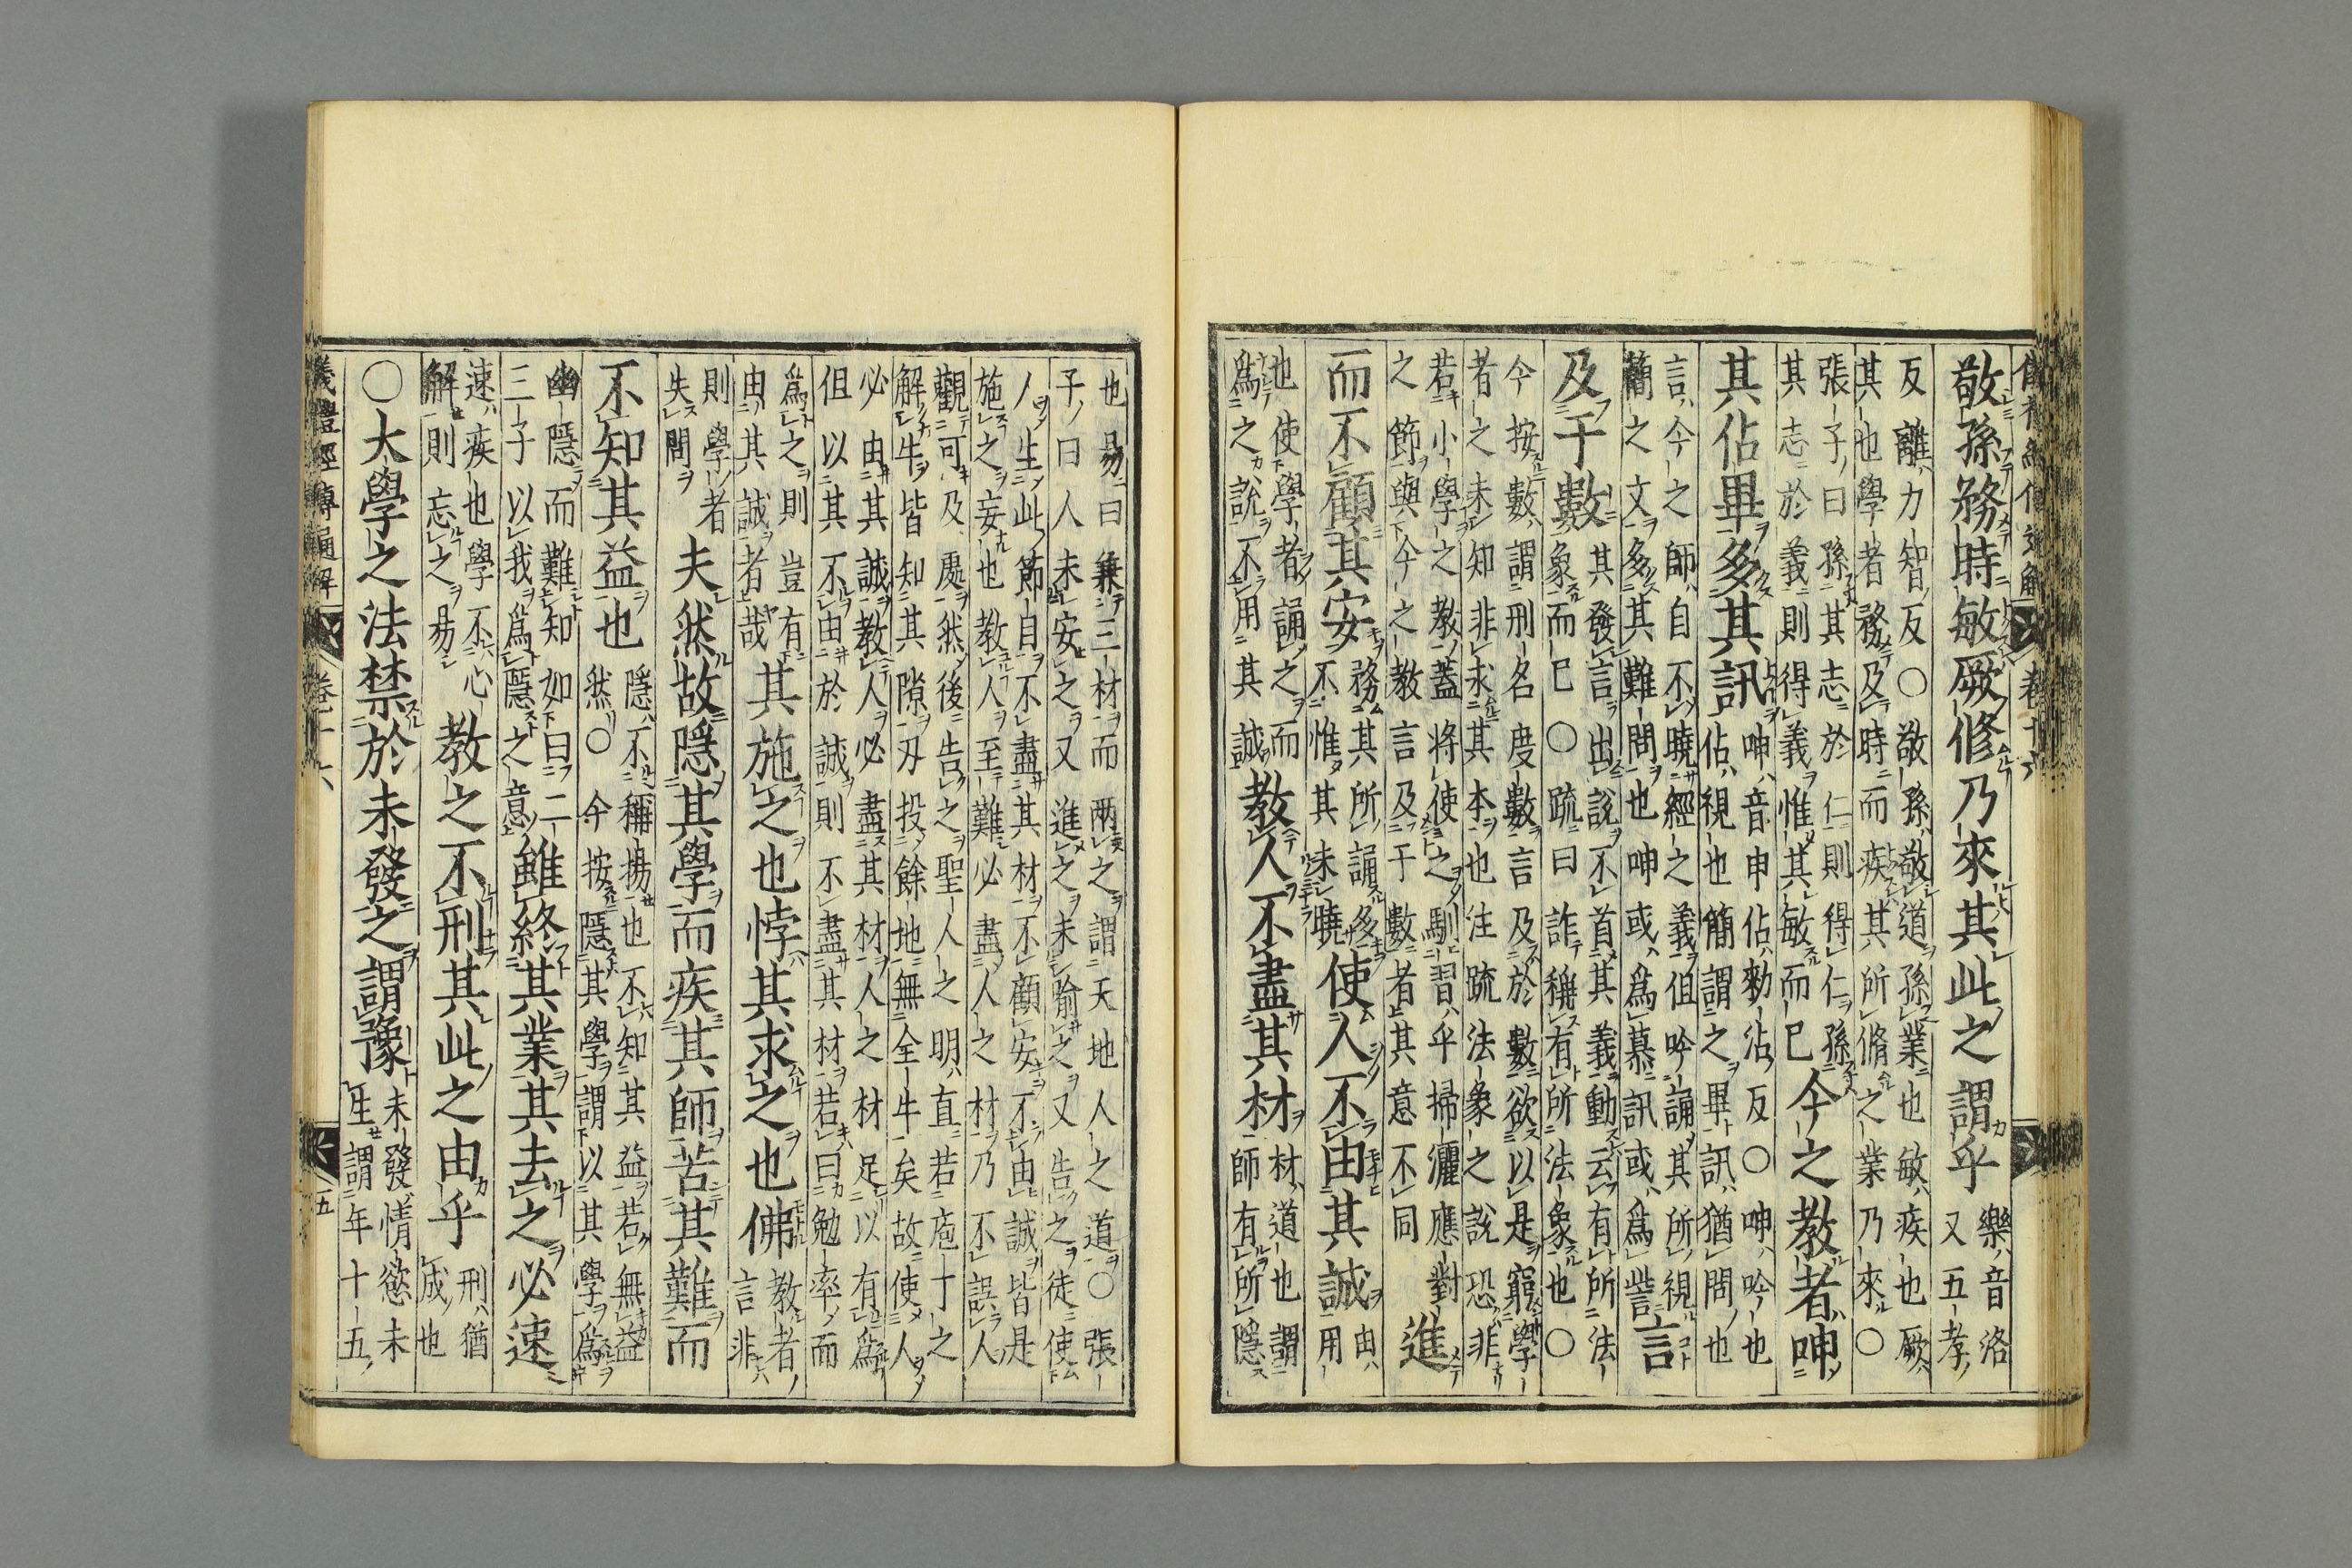 儀禮經傳通解 卷十六
敬孫務時敏厥修乃來其此之謂乎
樂音洛
又五孝
反離力智反○敬孫敬道孫業也敏疾也厥
其也學者務及時而疾其所脩之業乃來○
張子曰孫其志於仁則得仁孫
其志於義則得義惟其敏而已
今之教者呻
其佔畢多其訊
呻音申佔勑沾反○呻吟也
佔視也簡謂之畢訊猶問也
言今之師自不曉經之義但吟誦其所視
簡之文多其難問也呻或爲慕訊或爲訾
言
及于數
其發言出說不首其義動云有所法
象而已○疏曰詐稱有所法象也○
今按數謂刑名度數言及於數欲以是窮學
者之未知非求其本也注疏法象之說恐非
若小學之教蓋將使之馴習乎掃灑應對
之節與今之教言及于數者其意不同
進
而不顧其安
務其所誦多
不惟其未曉
使人不由其誠
由
用
也使學者誦之而
爲之說不用其誠
教人不盡其材
材道也謂
師有所隱
也易曰兼三材而两之謂天地人之道○張
子曰人未安之又進之未喻之又告之徒使
人生此節自不盡其材不顧安不由誠皆是
施之妄也教人至難必盡人之材乃不誤人
觀可及處然後告之聖人之明直若庖丁之
解牛皆知其隙刃投餘地無全牛矣故使人
必由其誠教人必盡其材人之材足以有爲
但以其不由於誠則不盡其材若曰勉率而
爲之則豈有
由其誠者哉
其施之也悖其求之也佛
教者
言非
則學者
失問
夫然故隱其學而疾其師苦其難而
不知其益也
隱不稱揚也不知其益若無益
然○今按隱其學謂以其學爲
幽隱而難知如曰二
三子以我爲隱之意
雖終其業其去之必速
速疾也學不心
解則忘之易
教之不刑其此之由乎
刑猶
成也
○大學之法禁於未發之謂豫
未發情慾未
生謂年十五
儀禮經傳通解 卷十六 五